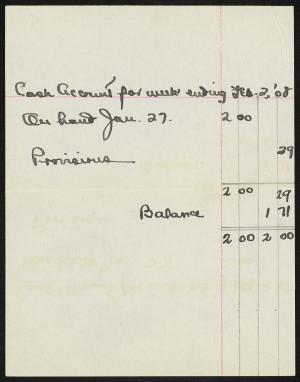 Cash Account for week ending Feb. 2, '08
On hand Jan. 27. 2 00
Provisions 29
2 00 29
Balance 1 71
2 00 2 00